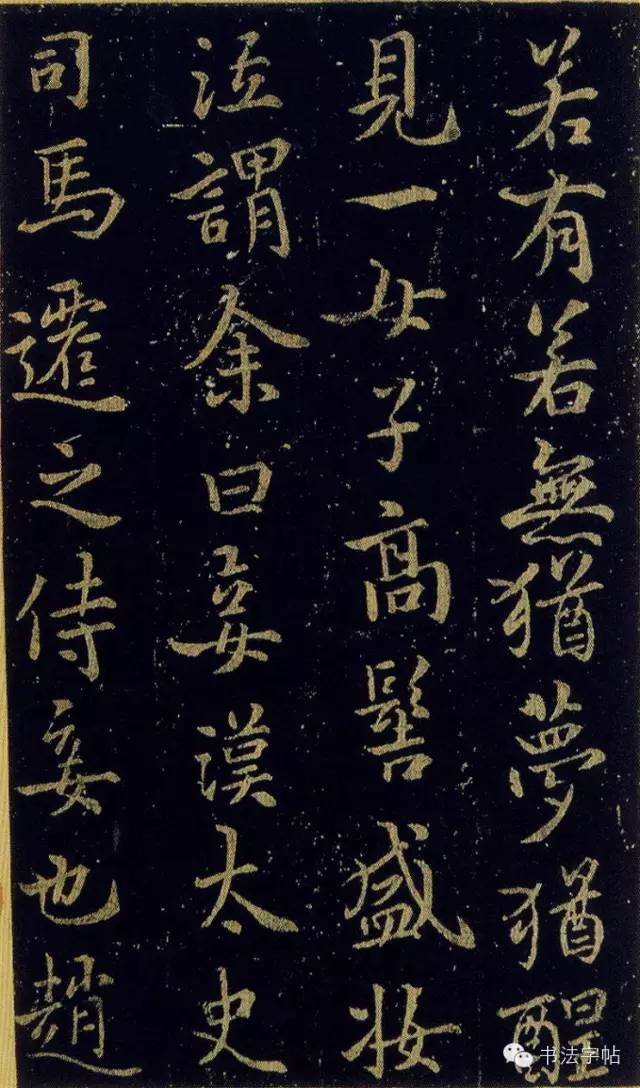 若有若無猶夢猶醒
見一女子高髻盛妝
泣謂余曰妾漢太史
司馬遷之侍妾也趙
书法字帖